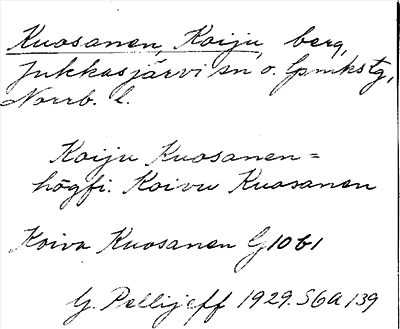 Kuosanen, Koiju, berg,
Jukkasjärvi sn o. lpmkstg,
Norrb. l.
Koiju Kuosanen =
högfi. Koivu Kuosanen
Koiva Kuosanen G10b1
G. Pellijeff 1929. S6A 139